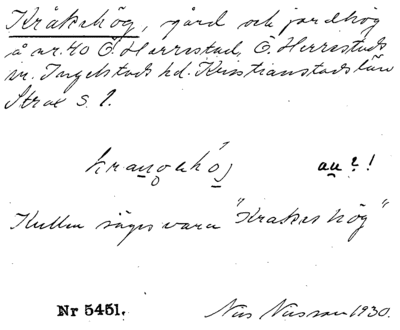 Kråkshög, gård och jordhög
å nr. 40 Ö. Herrestad, Ö. Herrestads
sn. Ingelstads hd. Kristianstads län
Strax S. 1.
au ? !
Kullen säges vara "Krakes hög"
Nr 5451. Nils Nilsson 1930.